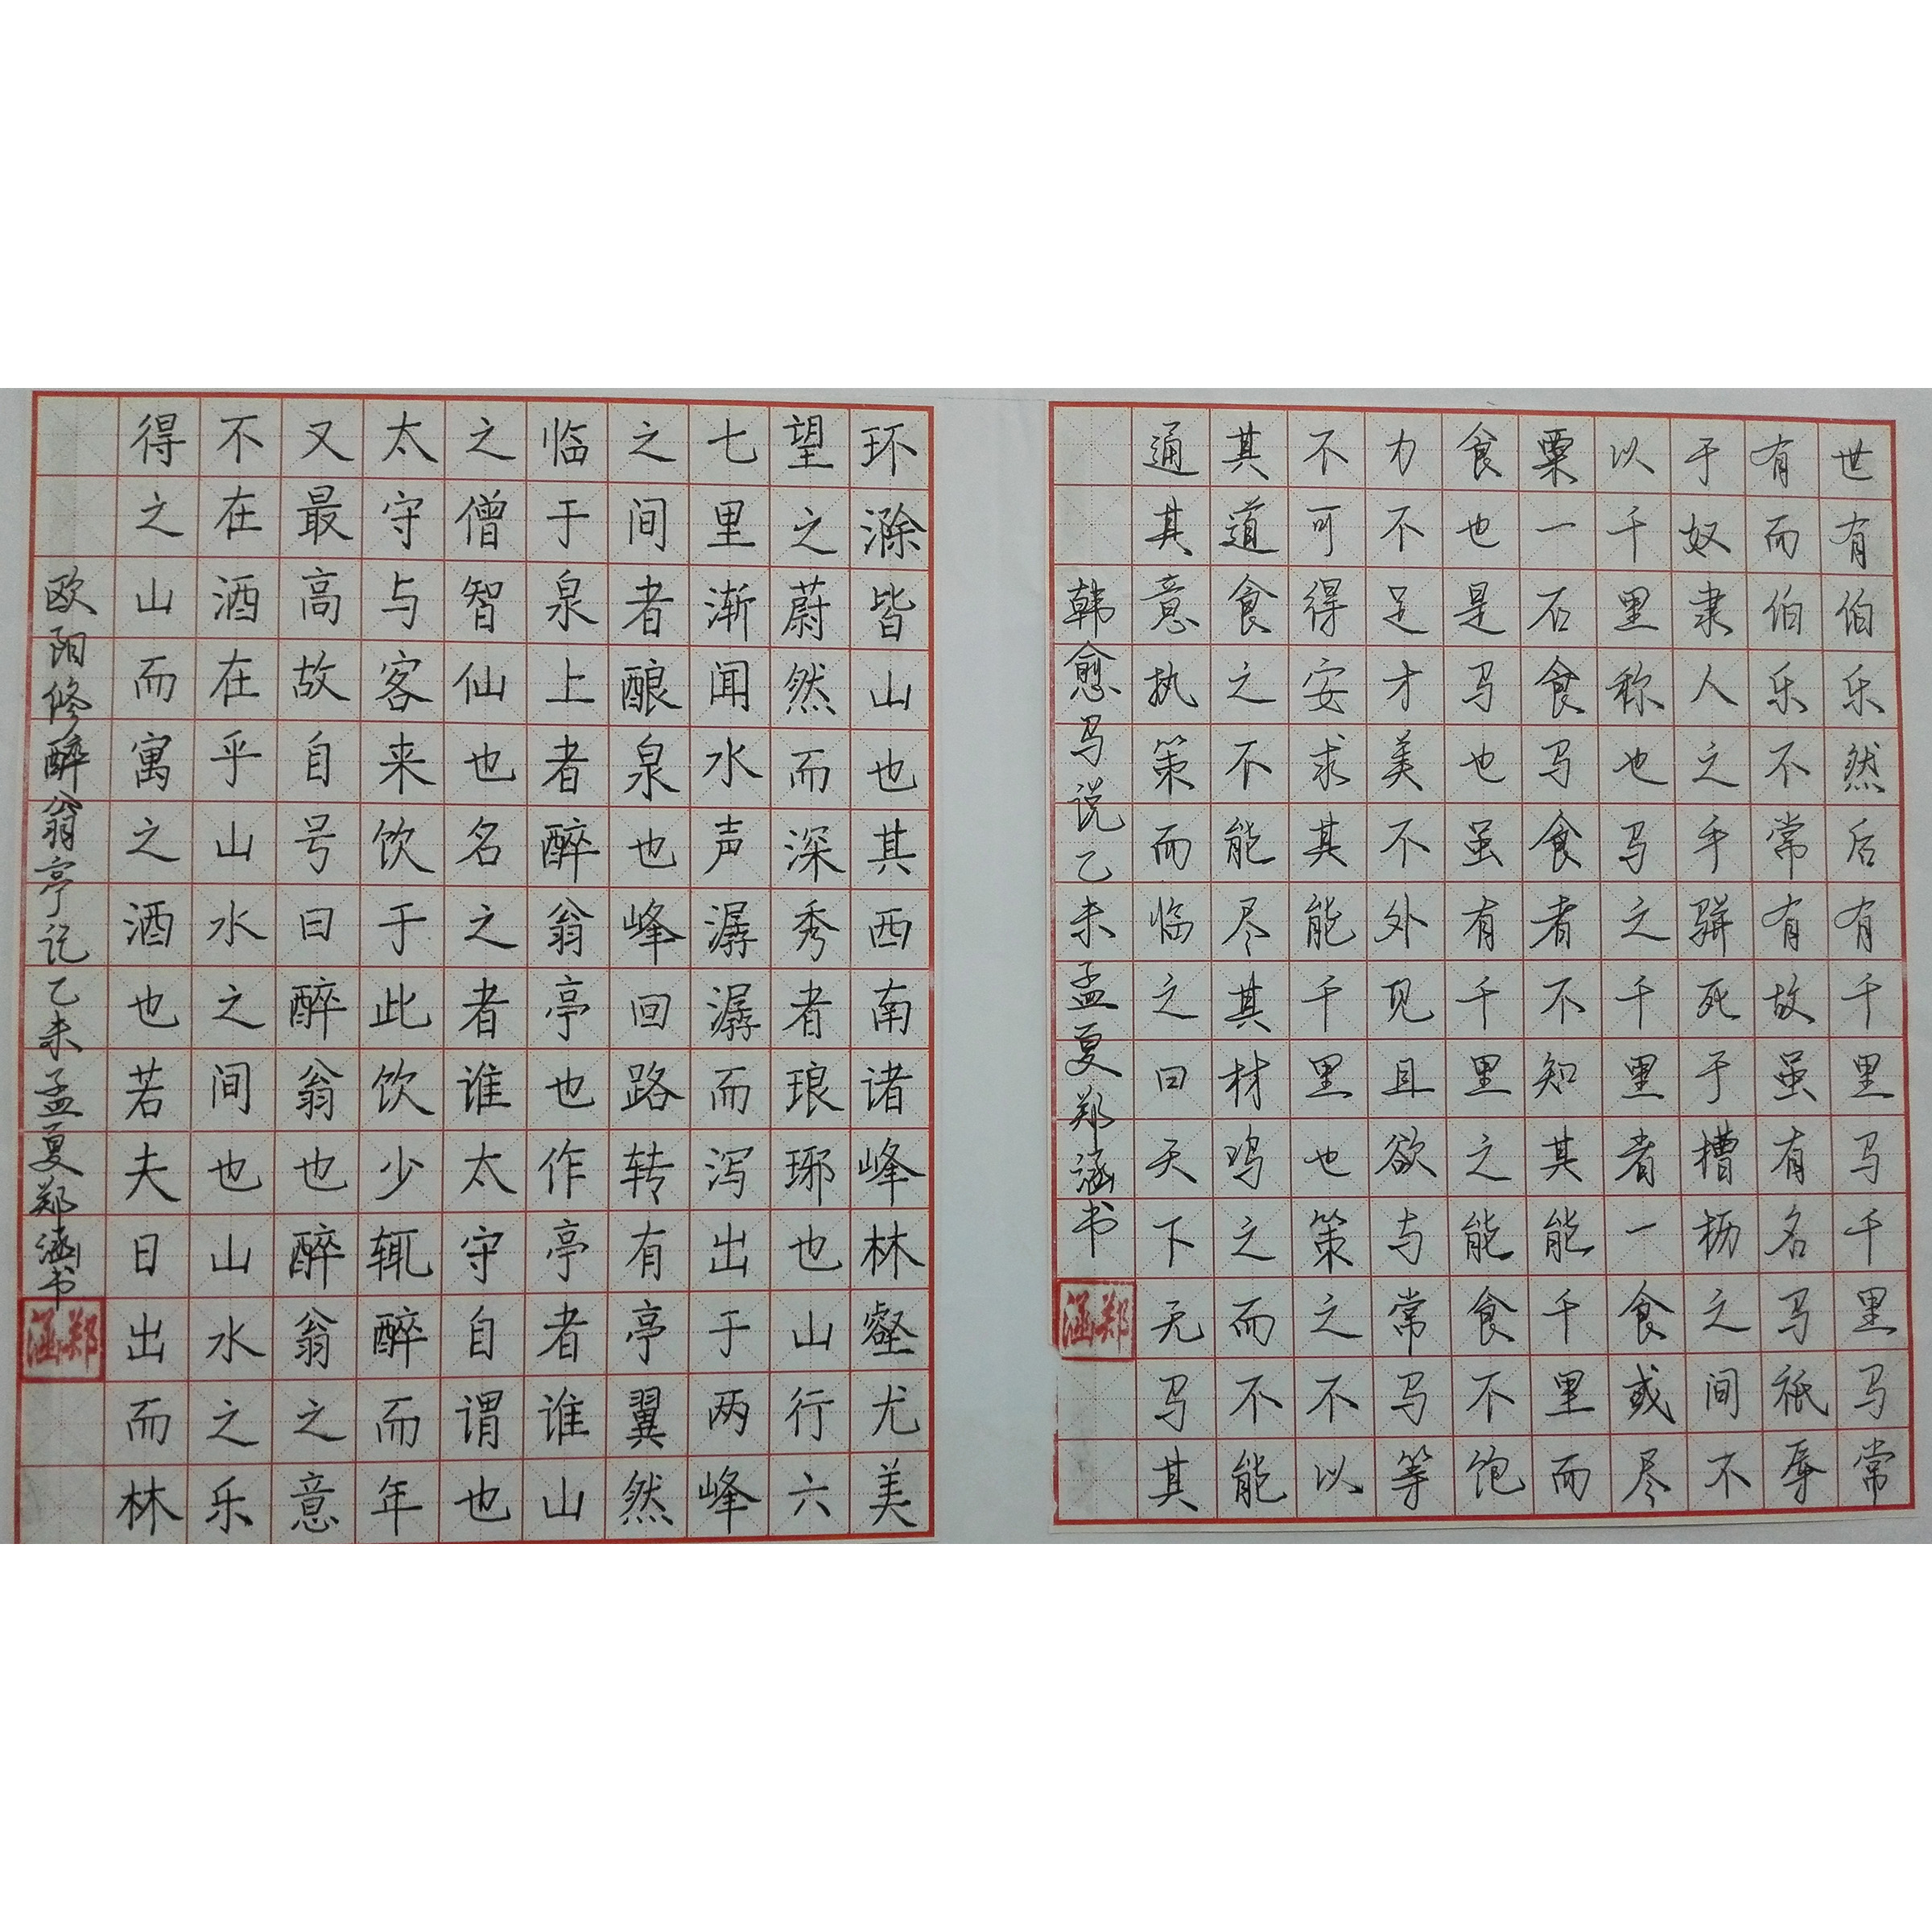 世有伯乐然后有千里马千里马常
有而伯乐不常有故虽有名马祇辱
于奴隶人之手骈死于槽枥之间不
以千里称也马之千里者一食或尽
粟一石食马者不知其能千里而
食也是马也虽有千里之能食不饱
力不足才美不外见且欲与常马等
不可得安求其能千里也策之不以
其道食之不能尽其材鸣之而不能
通其意执策而临之曰天下无马其
韩愈马说乙未孟夏郑涵书
郑涵
环滁皆山也其西南诸峰林壑尤美
望之蔚然而深秀者琅琊也山行六
七里渐闻水声潺潺而泻出于两峰
之间者酿泉也峰回路转有亭翼然
临于泉上者醉翁亭也作亭者谁山
之僧智仙也名之者谁太守自谓也
太守与客来饮于此饮少辄醉而年
又最高故自号曰醉翁也醉翁之意
不在酒在乎山水之间也山水之乐
得之山而寓之酒也若夫日出而林
欧阳修醉翁亭记乙未孟夏郑涵书
郑涵